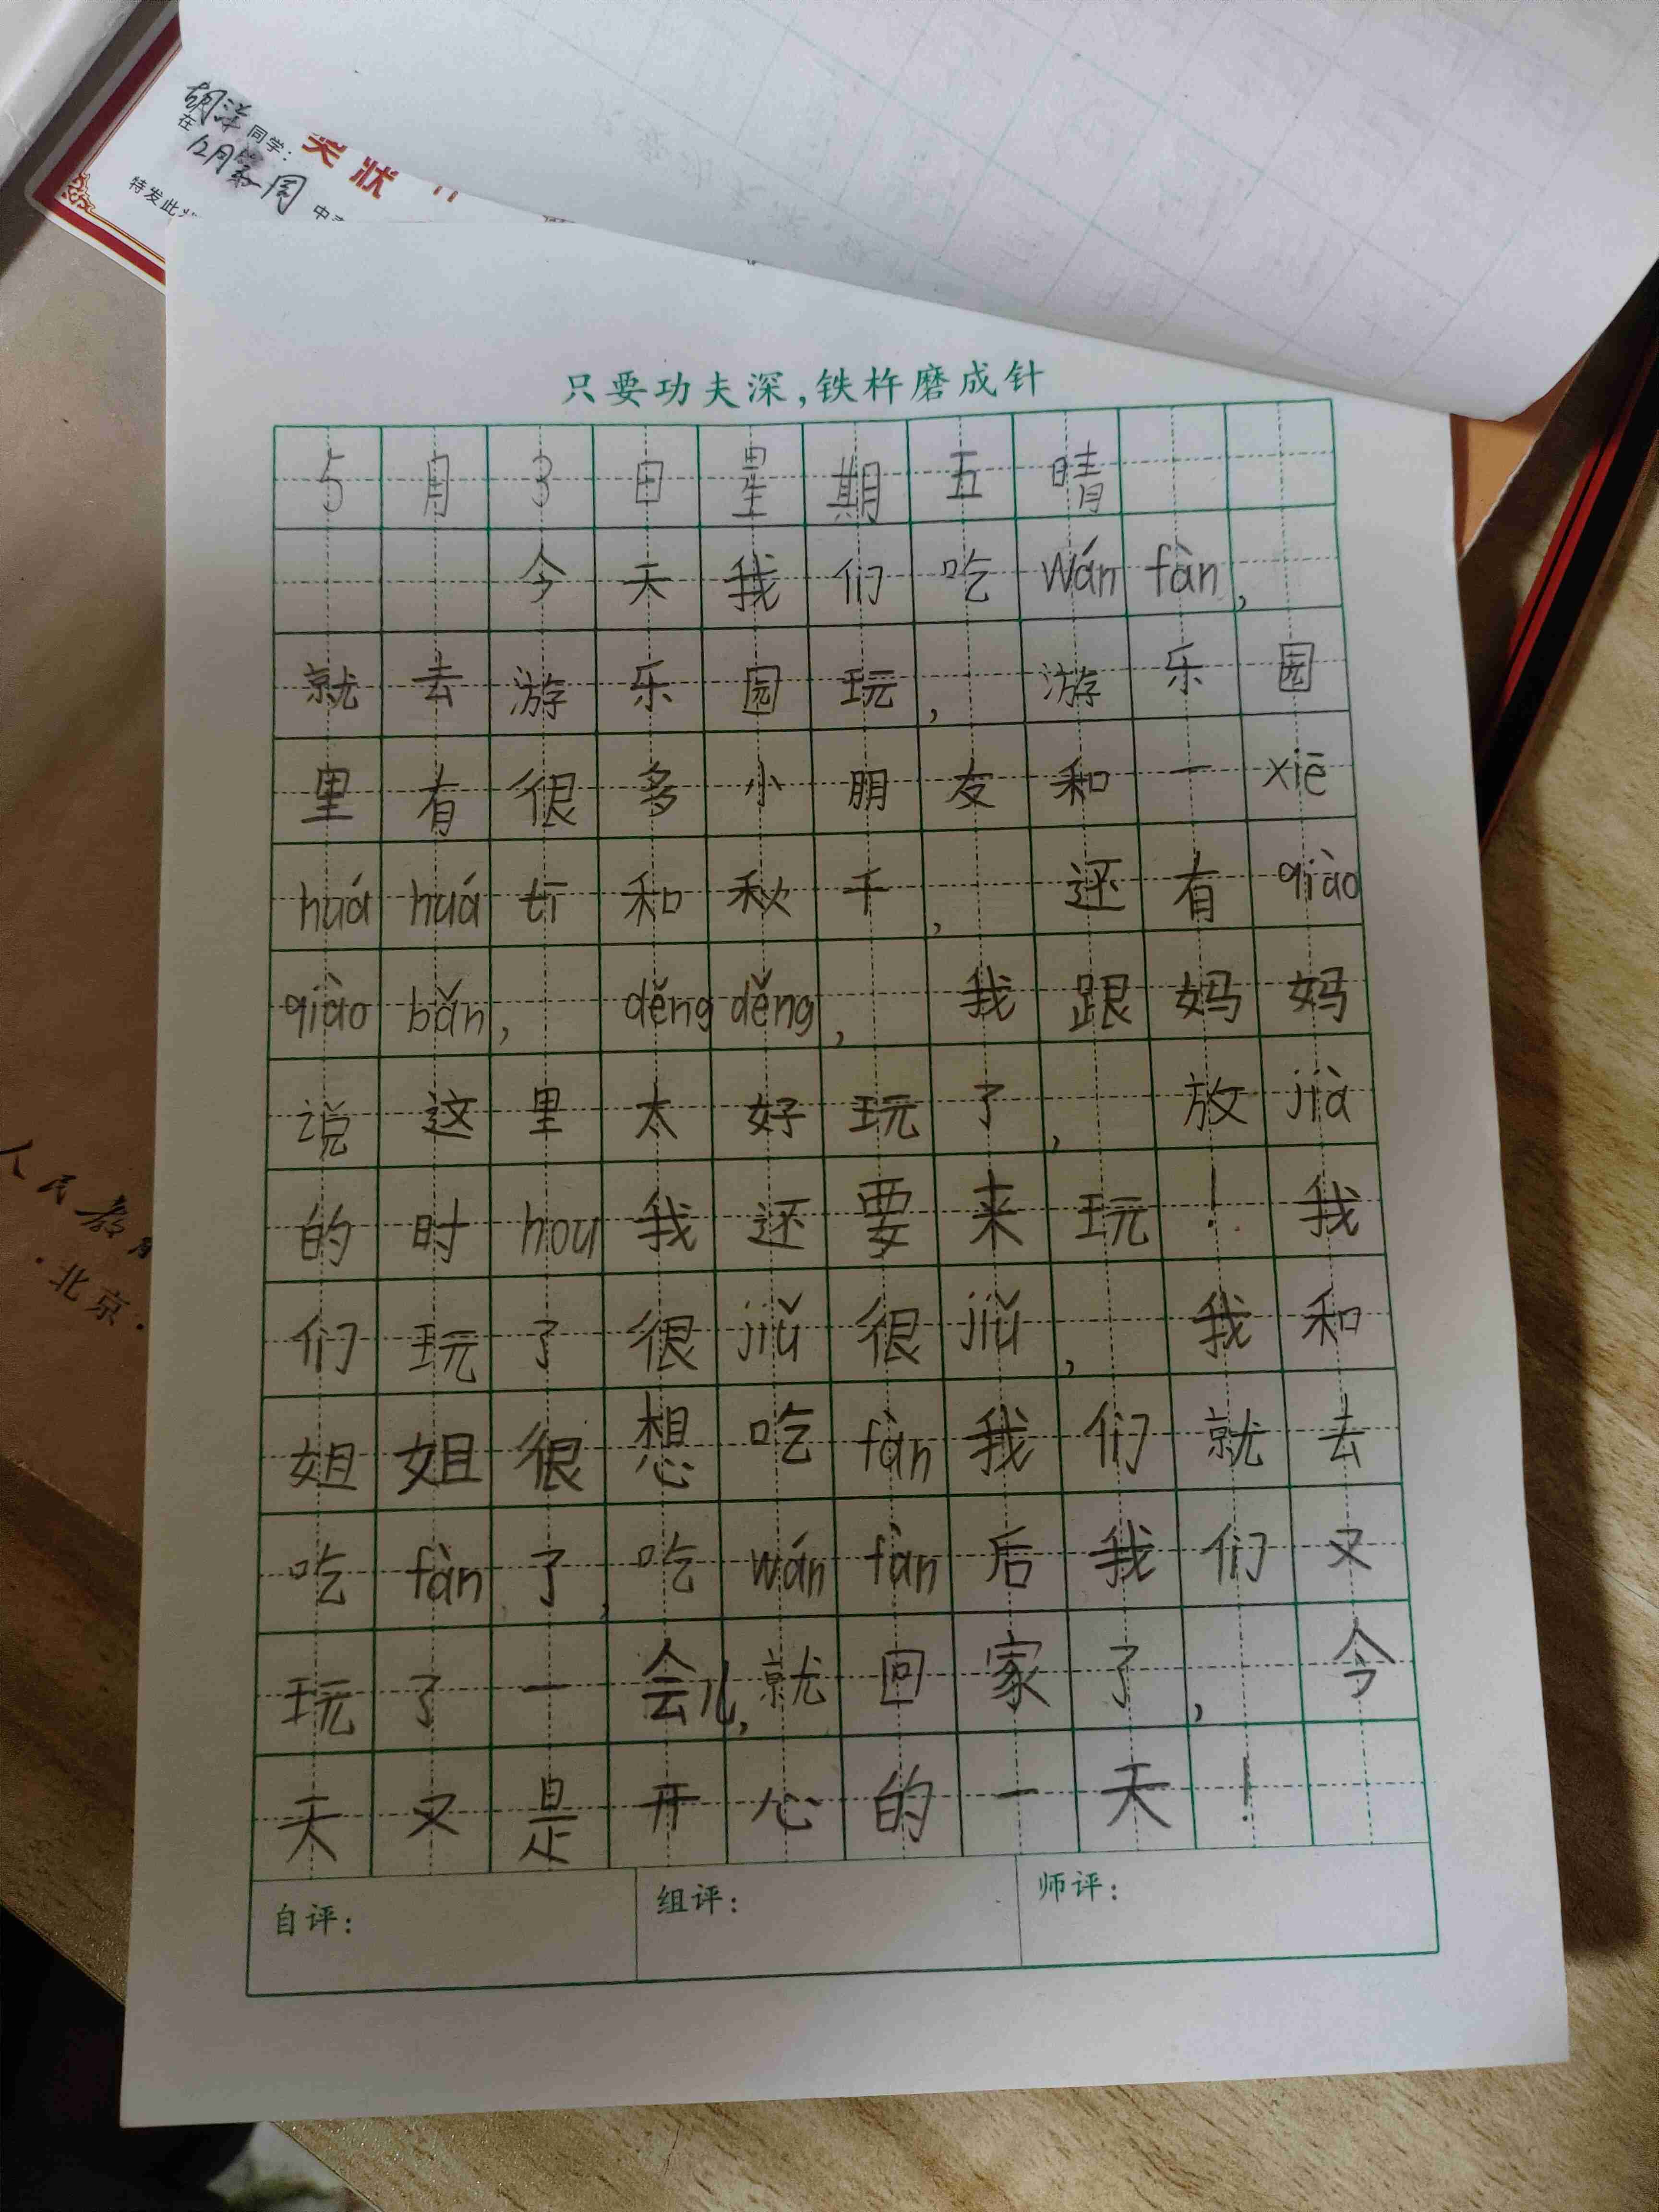 胡洋同学：
在12月第一周 中
奖状
特发此
只要功夫深,铁杵磨成针
5月3日星期五晴
今天我们吃wán fàn,
就去游乐园玩,游乐园
里有很多小朋友和一xiē
huá huá tī和秋千,还有qiào
qiào bǎn,děng děng,我跟妈妈
说这里太好玩了,放jià
的时hou我还要来玩!我
们玩了很jiǔ很jiǔ,我和
姐姐很想吃fàn我们就去
吃fàn了,吃wán fàn后我们又
玩了一会儿,就回家了,今
天又是开心的一天!
自评:
组评:
师评:
人民教
·北京·